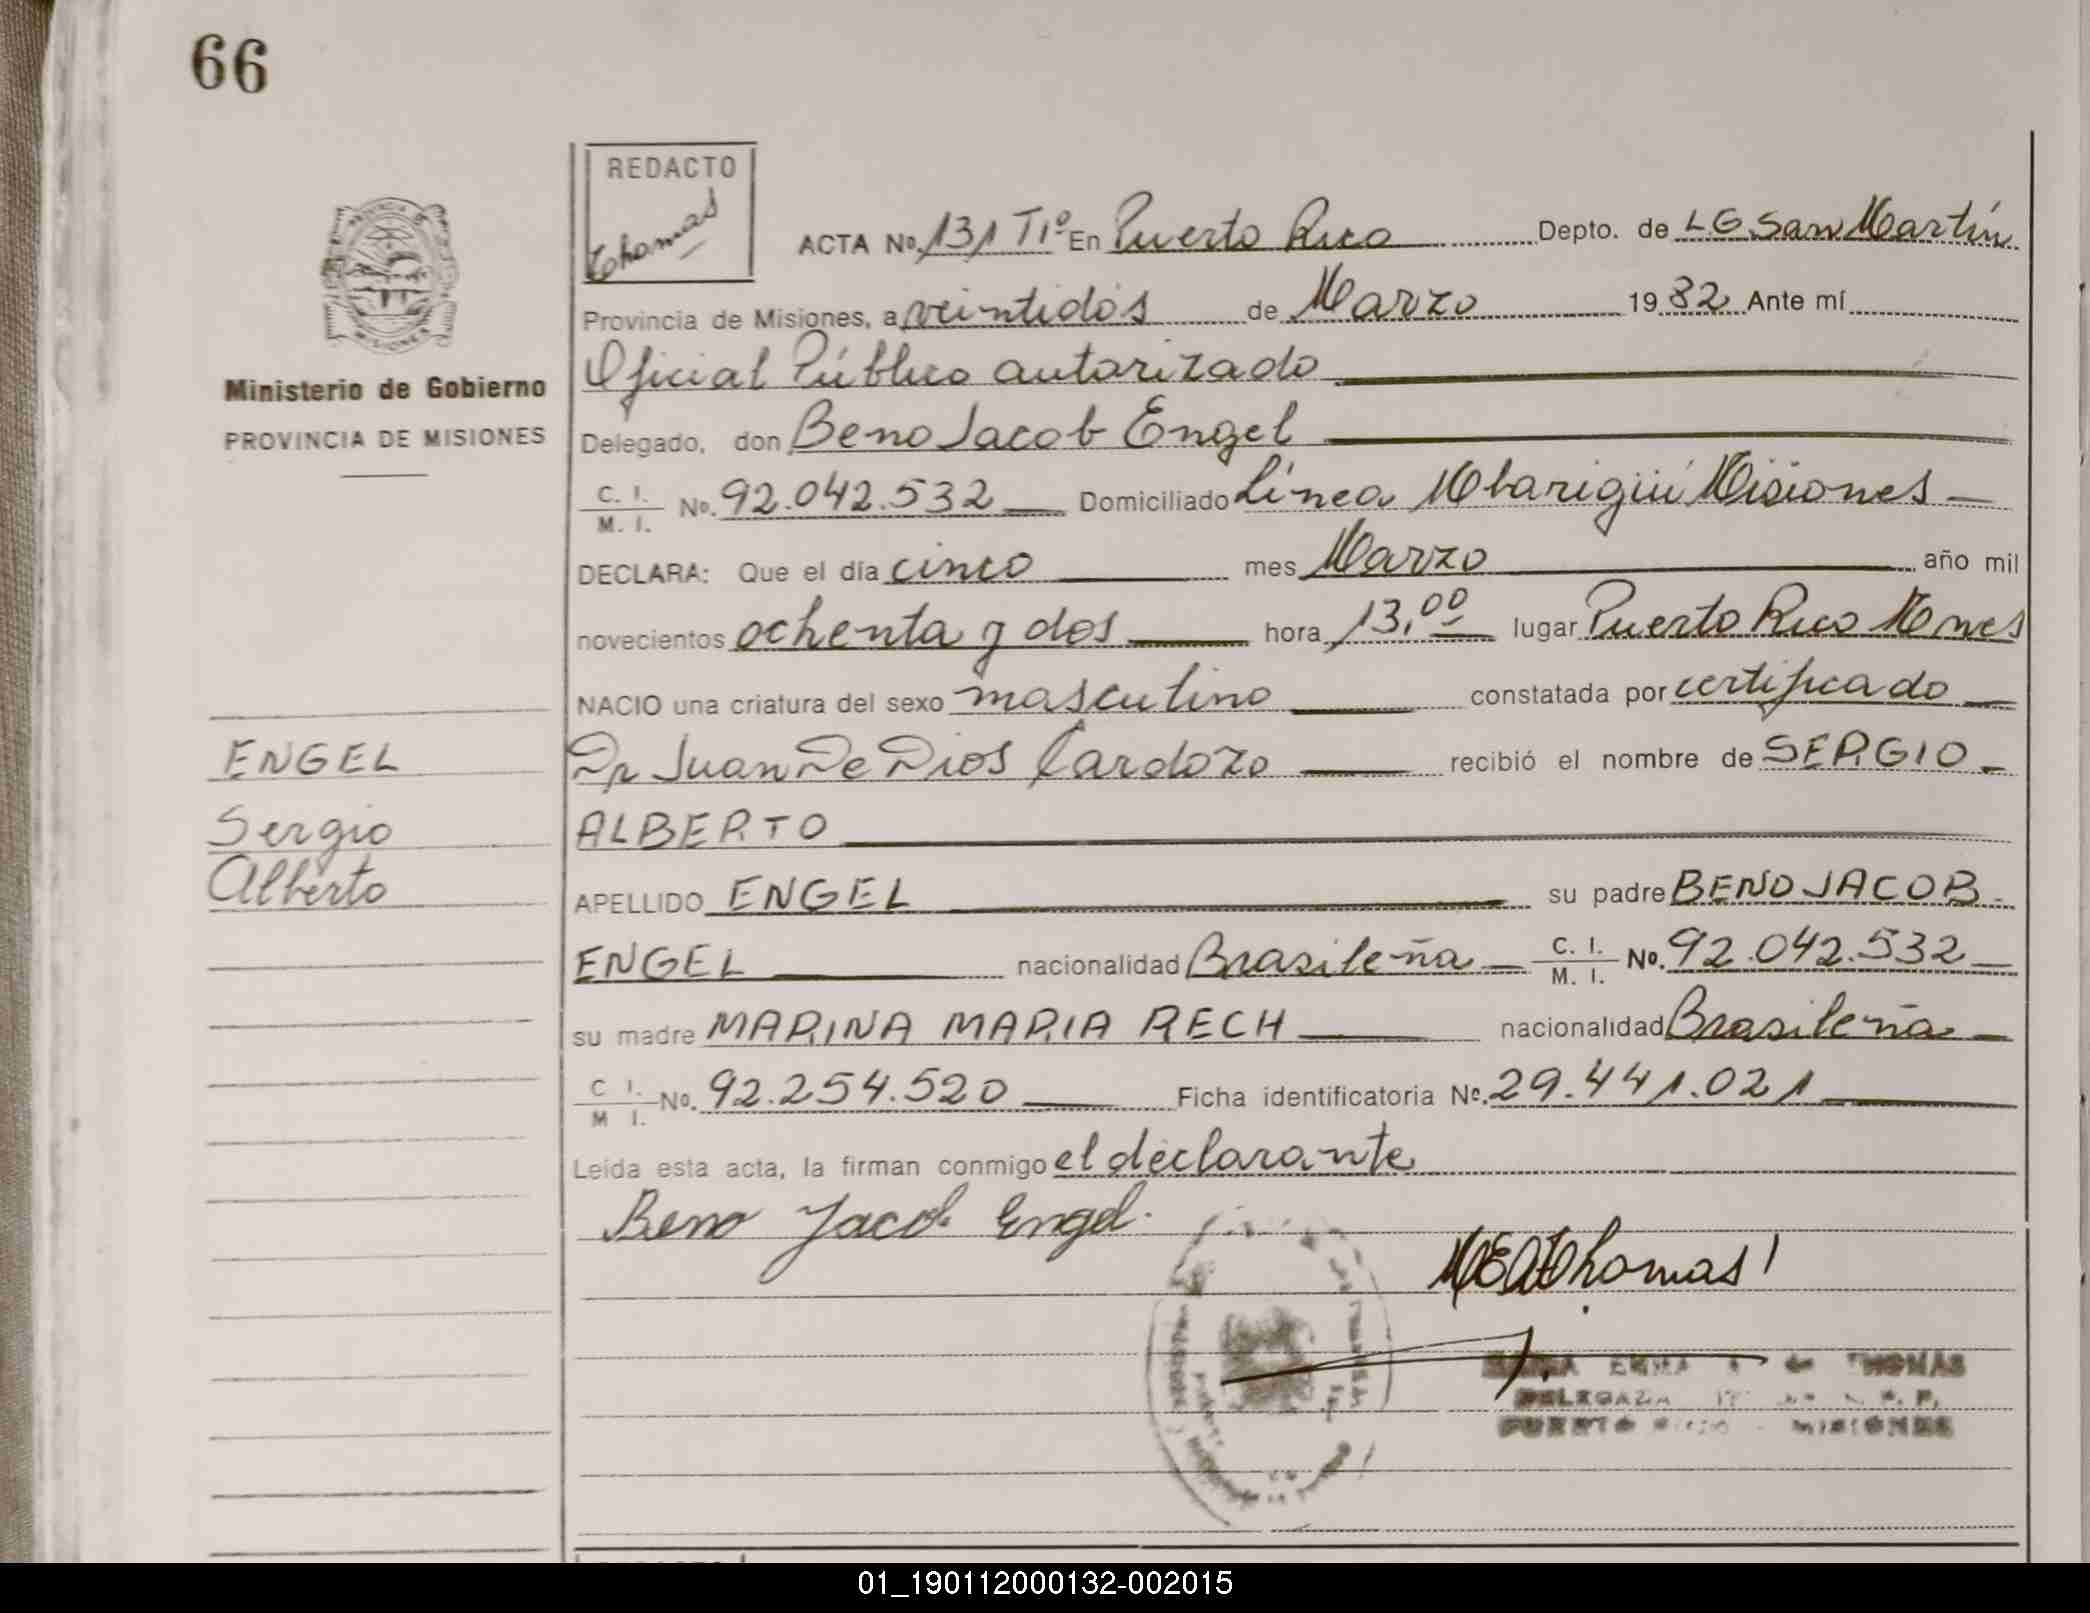 66
REDACTO
Thomas
PROVINCIA DE
MISIONES
Ministerio de Gobierno
PROVINCIA DE MISIONES
ACTA No. 131 T1º En Puerto Rico Depto. de L G San Martín
Provincia de Misiones, a veintidós de Marzo 1982 Ante mí
Oficial Público autorizado
Delegado, don Beno Jacob Engel
C. I.
M. I. No. 92.042.532 Domiciliado Línea Mbarigüí Misiones
DECLARA: Que el día cinco mes Marzo año mil
novecientos ochenta y dos hora 13,00 lugar Puerto Rico Mnes
NACIO una criatura del sexo masculino constatada por certificado
Dr Juan De Dios Cardozo recibió el nombre de SERGIO
ALBERTO
ENGEL
Sergio
Alberto
APELLIDO ENGEL su padre BENO JACOB
ENGEL nacionalidad Brasileña C. I.
M. I. No. 92.042.532
su madre MARINA MARIA RECH nacionalidad Brasileña
C I.
M I. No. 92.254.520 Ficha identificatoria No. 29.441.021
Leída esta acta, la firman conmigo el declarante
Beno Jacob Engel.
Thomas
ERMA de THOMAS
DELEGADA
PUERTO RICO - MISIONES
01_190112000132-002015